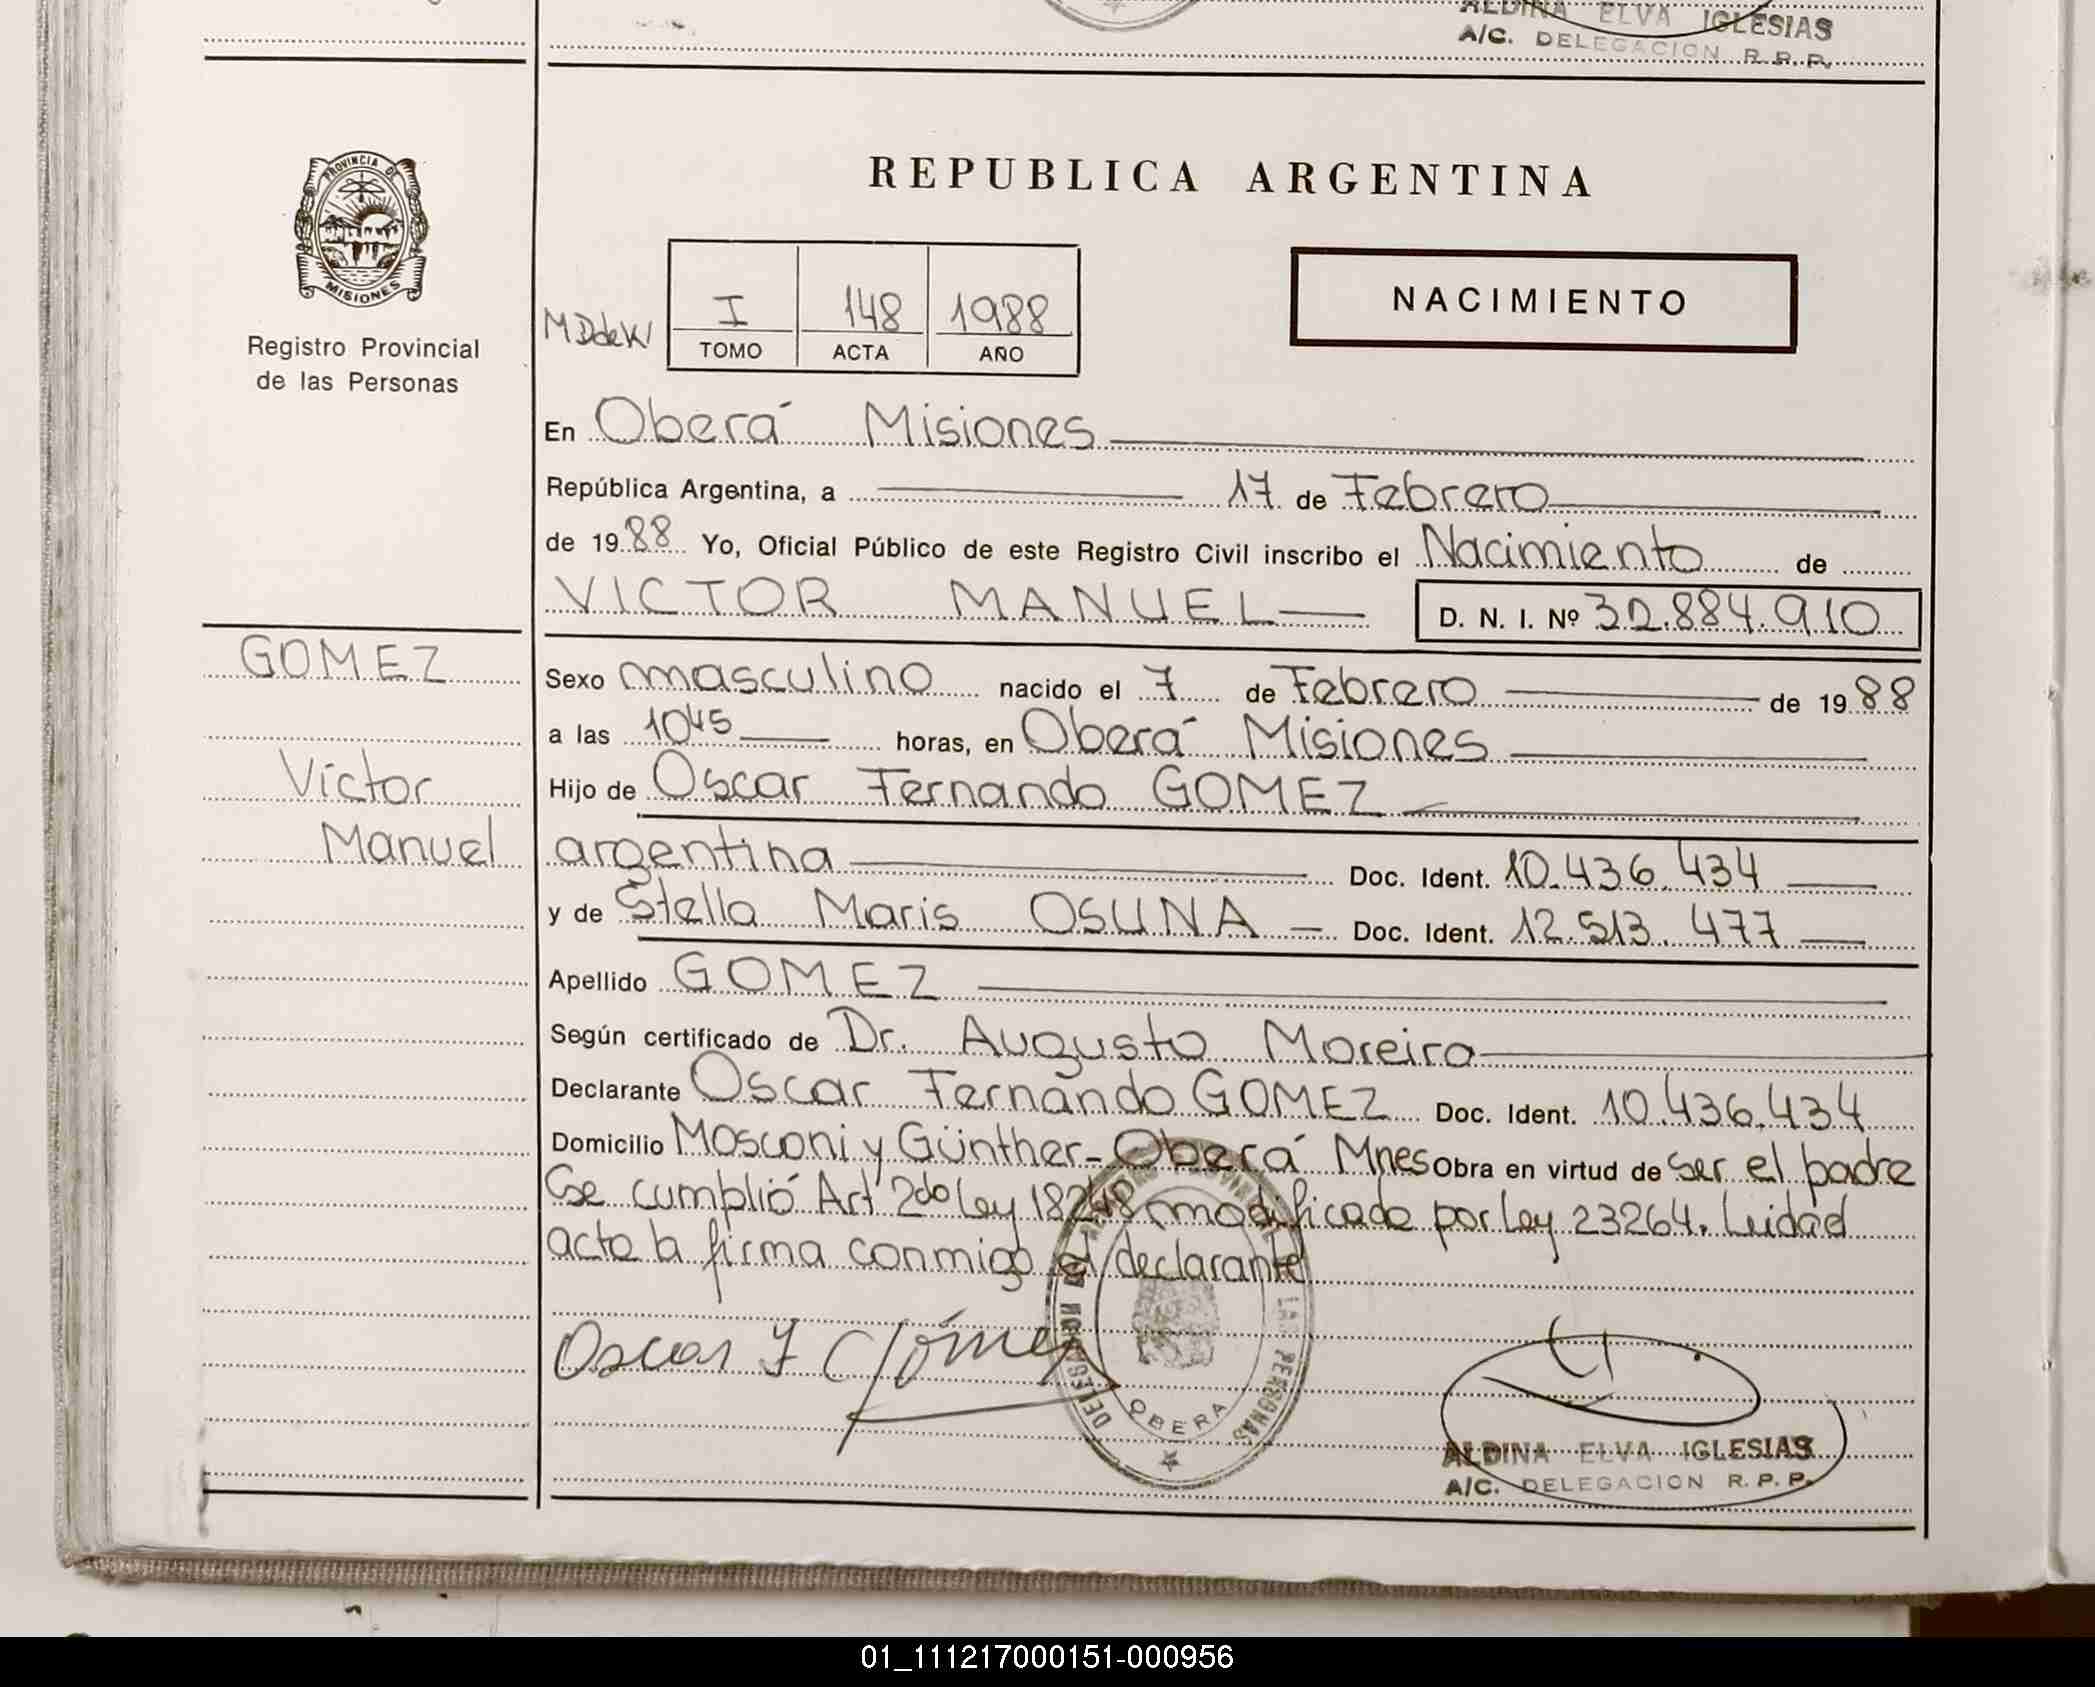 ALDINA ELVA IGLESIAS
A/C. DELEGACION R.P.P.
PROVINCIA DE
MISIONES
Registro Provincial
de las Personas
REPUBLICA ARGENTINA
MDdeK
I 148 1988
TOMO ACTA AÑO
NACIMIENTO
En Oberá Misiones
República Argentina, a 17 de Febrero
de 1988 Yo, Oficial Público de este Registro Civil inscribo el Nacimiento de
VICTOR MANUEL D. N. I. Nº 32.884.910
GOMEZ
Victor
Manuel
Sexo masculino nacido el 7 de Febrero de 1988
a las 1045 horas, en Oberá Misiones
Hijo de Oscar Fernando GOMEZ
argentina Doc. Ident. 10.436.434
y de Stella Maris OSUNA Doc. Ident. 12.513.477
Apellido GOMEZ
Según certificado de Dr. Augusto Moreira
Declarante Oscar Fernando GOMEZ Doc. Ident. 10.436.434
Domicilio Mosconi y Günther - Oberá Mnes Obra en virtud de ser el padre
Se cumplió Art 2do Ley 18248 modificado por Ley 23264. Leida el
acta la firma conmigo el declarante
Oscar F Gómez
DELEGACION
LAS PERSONAS
OBERA
ALDINA ELVA IGLESIAS
A/C. DELEGACION R.P.P.
01_111217000151-000956